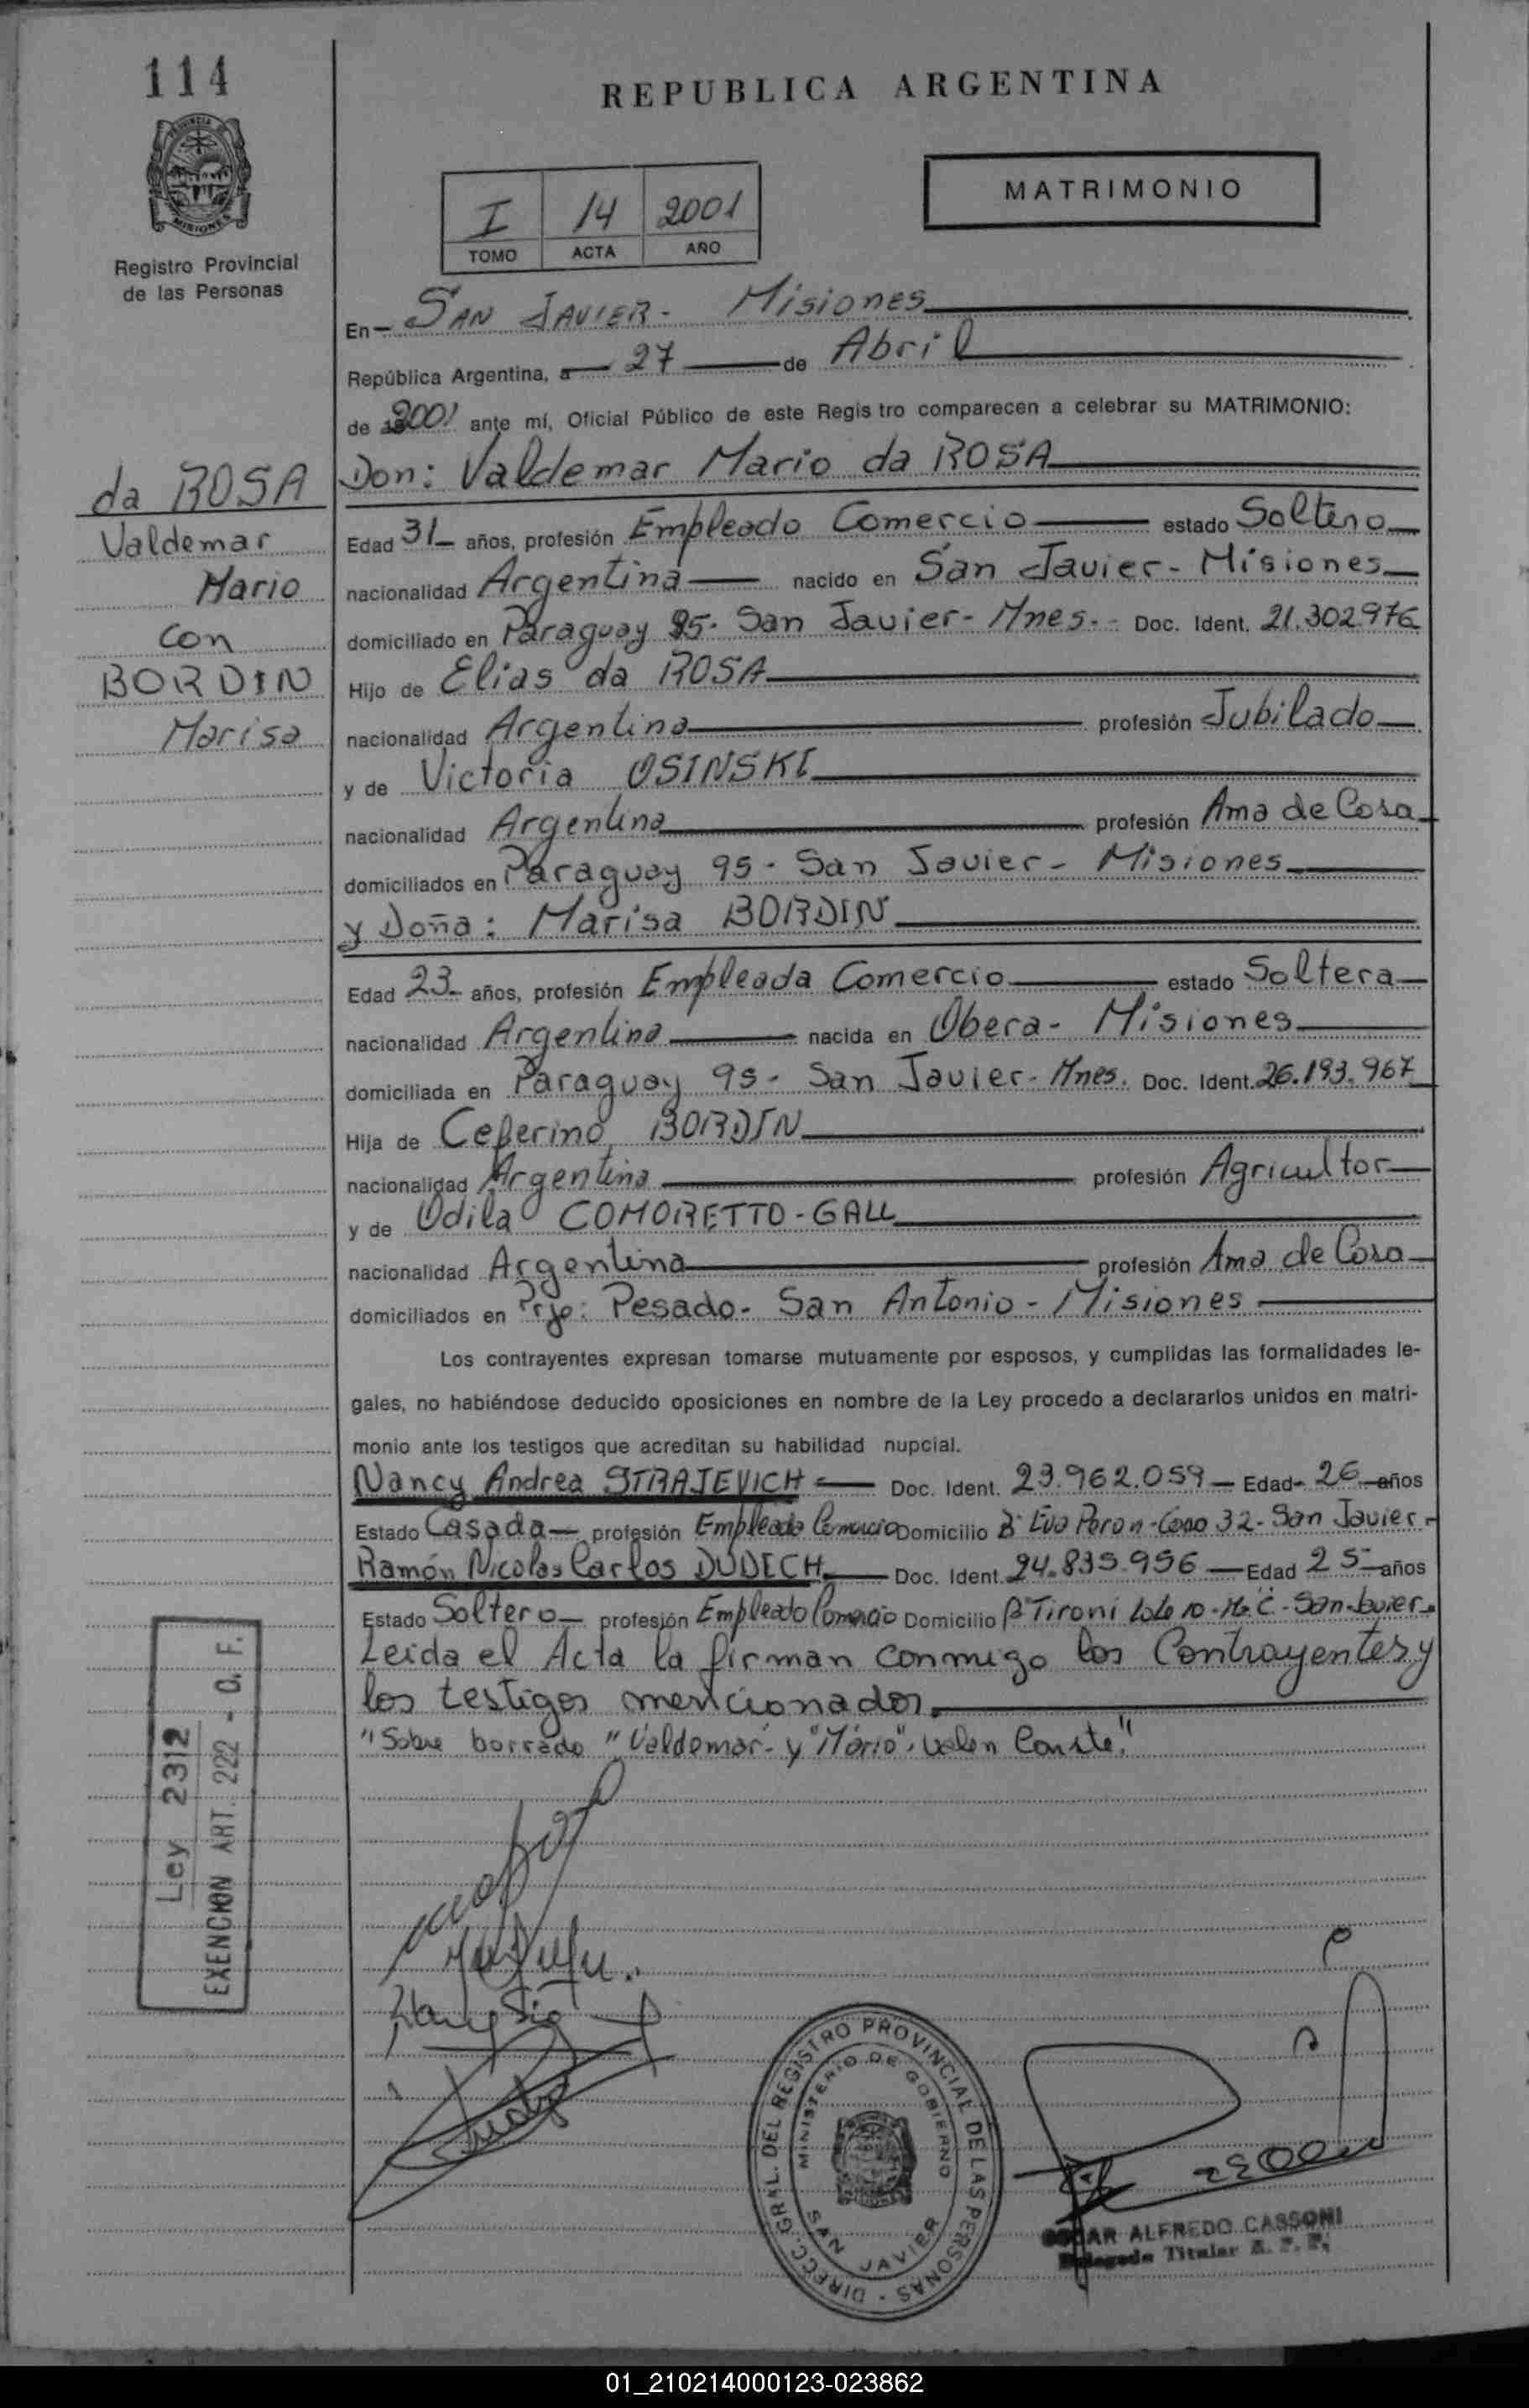 114
REPUBLICA ARGENTINA
MATRIMONIO
I 14 2001
TOMO ACTA AÑO
Registro Provincial
de las Personas
En - SAN JAVIER - Misiones
República Argentina, a 27 de Abril
de 2001 ante mí, Oficial Público de este Regis tro comparecen a celebrar su MATRIMONIO:
da ROSA
Valdemar
Mario
Con
BORDIN
Marisa
Don: Valdemar Mario da ROSA
Edad 31 años, profesión Empleado Comercio estado Soltero
nacionalidad Argentina nacido en San Javier - Misiones
domiciliado en Paraguay 95 - San Javier - Mnes. - Doc. Ident. 21.302976
Hijo de Elias da ROSA
nacionalidad Argentina profesión Jubilado
y de Victoria OSINSKI
nacionalidad Argentina profesión Ama de Casa
domiciliados en Paraguay 95 - San Javier - Misiones
y Doña: Marisa BORDIN
Edad 23 años, profesión Empleada Comercio estado Soltera
nacionalidad Argentina nacida en Obera - Misiones
domiciliada en Paraguay 95 - San Javier - Mnes. Doc. Ident. 26.193.967
Hija de Ceferino BORDIN
nacionalidad Argentina profesión Agricultor
y de Odila COMORETTO - GALL
nacionalidad Argentina profesión Ama de Casa
domiciliados en Prje: Pesado - San Antonio - Misiones
Los contrayentes expresan tomarse mutuamente por esposos, y cumplidas las formalidades le-
gales, no habiéndose deducido oposiciones en nombre de la Ley procedo a declararlos unidos en matri-
monio ante los testigos que acreditan su habilidad nupcial.
Nancy Andrea STRAJEVICH Doc. Ident. 23.962.059 - Edad - 26 años
Estado Casada profesión Empleada Comercio Domicilio B° Eva Peron - Casa 32 - San Javier -
Ramón Nicolas Carlos DUDECH Doc. Ident. 24.835.956 - Edad 25 años
Estado Soltero profesión Empleado Comercio Domicilio B° Tironi Lote 10 - Mz. C - San Javier
Leida el Acta la firman conmigo los Contrayentes y
los testigos mencionados.
"Sobre borrado "Valdemar - y "Mario". Valen Conste."
Ley 2312
EXENCION ART. 222 - C. F.
DIRECC. GRAL. DEL REGISTRO PROVINCIAL DE LAS PERSONAS
MINISTERIO DE GOBIERNO
SAN JAVIER
OSCAR ALFREDO CASSONI
Delegado Titular
01_210214000123-023862